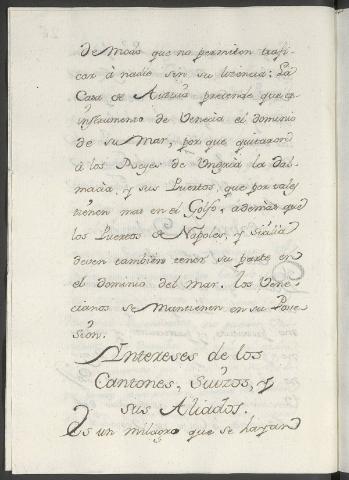 de modo que no permiten trafi-
car à nadie sin su licencia: La
Casa de Austria pretende que es
de su Mar, por que quitaron
à los Reyes de Ungria la Dal-
macia, y sus Puertos, que por tales
tienen mar en el Golfo, ademàs que
los Puertos de Napoles, y Sicilia
deven tambien tener su parte en
el dominio del Mar. los Vene-
cianos se mantienen en su Posse-
sion.
Intereses de los
Cantones, Suizos, y
sus Aliados.
Es un milagro que se hayan